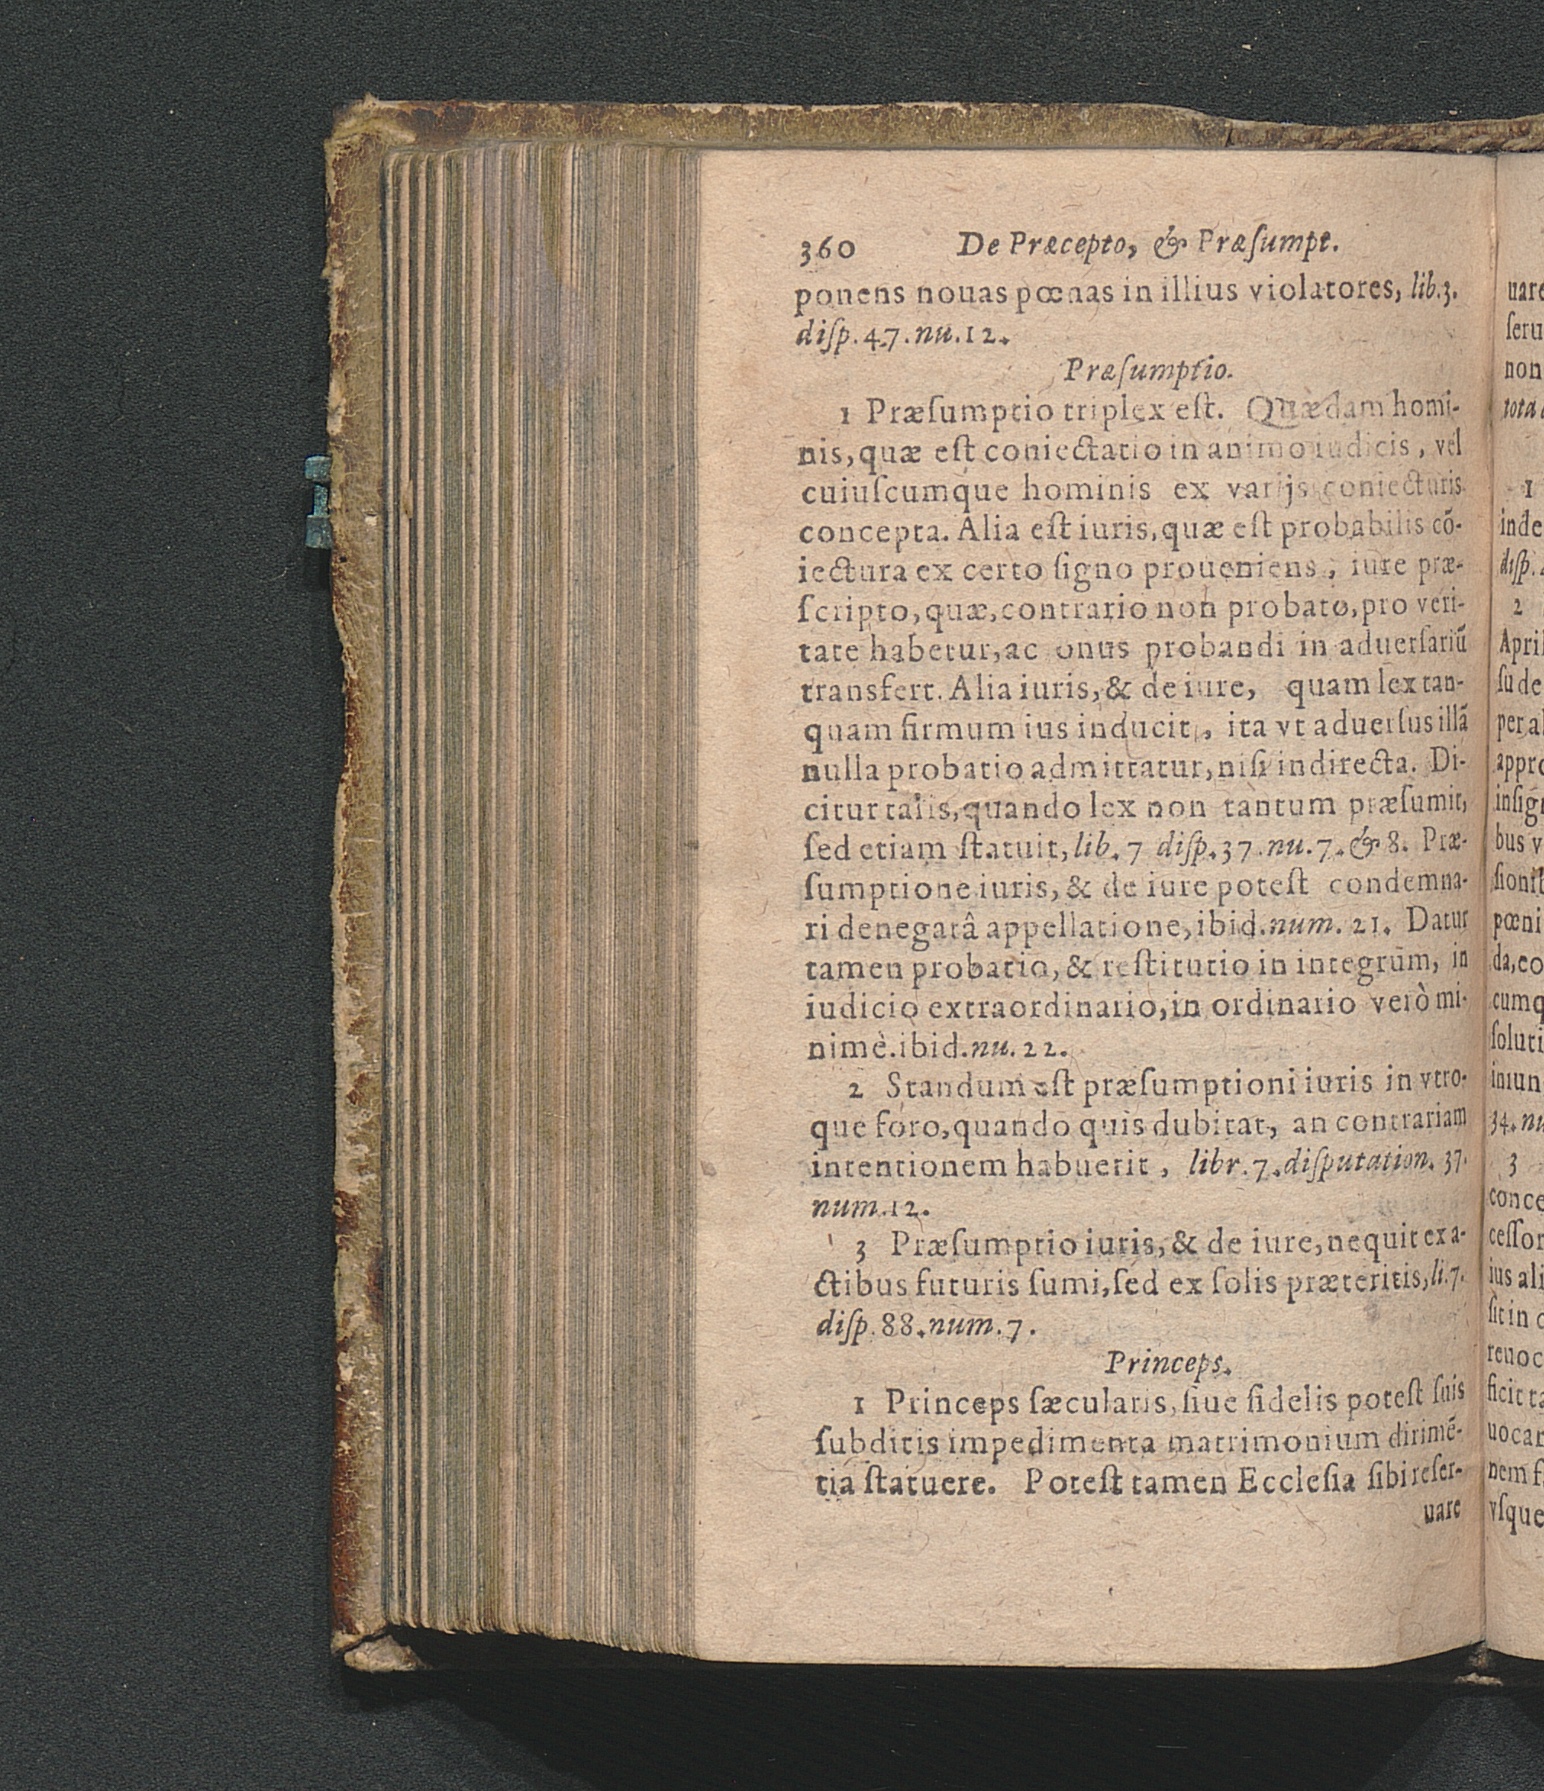 360 De Præcepto, & Præſumpt.
ponens nouas pœnas in illius violatores, lib.3.
diſp.47.nu.12.
Præſumptio.
1 Præſumptio triplex eſt. Quædam homi-
nis, quæ eſt coniectatio in animo iudicis, vel
cuiuſcumque hominis ex varijs coniecturis
concepta. Alia eſt iuris, quæ eſt probabilis cõ-
iectura ex certo ſigno proueniens, iure præ-
ſcripto, quæ, contrario non probato, pro veri-
tate habetur, ac onus probandi in aduerſariũ
transfert. Alia iuris, & de iure, quam lex tan-
quam firmum ius inducit, ita vt aduerſus illã
nulla probatio admittatur, niſi indirecta. Di-
citur talis, quando lex non tantum præſumit,
ſed etiam ſtatuit, lib.7 diſp.37.nu.7.& 8. Præ-
ſumptione iuris, & de iure poteſt condemna-
ri denegatâ appellatione, ibid.num.21. Datur
tamen probatio, & reſtitutio in integrũm, in
iudicio extraordinario, in ordinario verò mi-
nimè.ibid.nu.22.
2 Standum eſt præſumptioni iuris in vtro-
que foro, quando quis dubitat, an contrariam
intentionem habuerit, libr.7.diſputation.37.
num.12.
3 Præſumptio iuris, & de iure, nequit ex a-
ctibus futuris ſumi, ſed ex ſolis præteritis, li.7.
diſp.88.num.7.
Princeps.
1 Princeps ſæcularis, ſiue fidelis poteſt ſuis
ſubditis impedimenta matrimonium dirimẽ-
tia ſtatuere. Poteſt tamen Eccleſia ſibi reſer-
uare
uare
ſeru
non
tota
1
inde
diſp.
2
April
ſu de
per al
appro
inſig
bus v
ſionib
pœni
da, co
cumq
ſoluti
iniun
34.nu
3
conce
ceſſor
ius ali
ſit in
reuoc
ficit ta
uocar
nem ſ
vſque